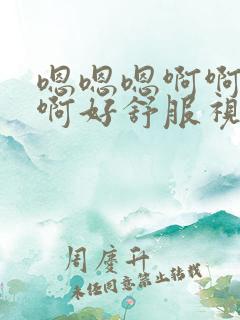 嗯嗯嗯啊啊
啊好舒服視
周慶升
未经同意禁止转载